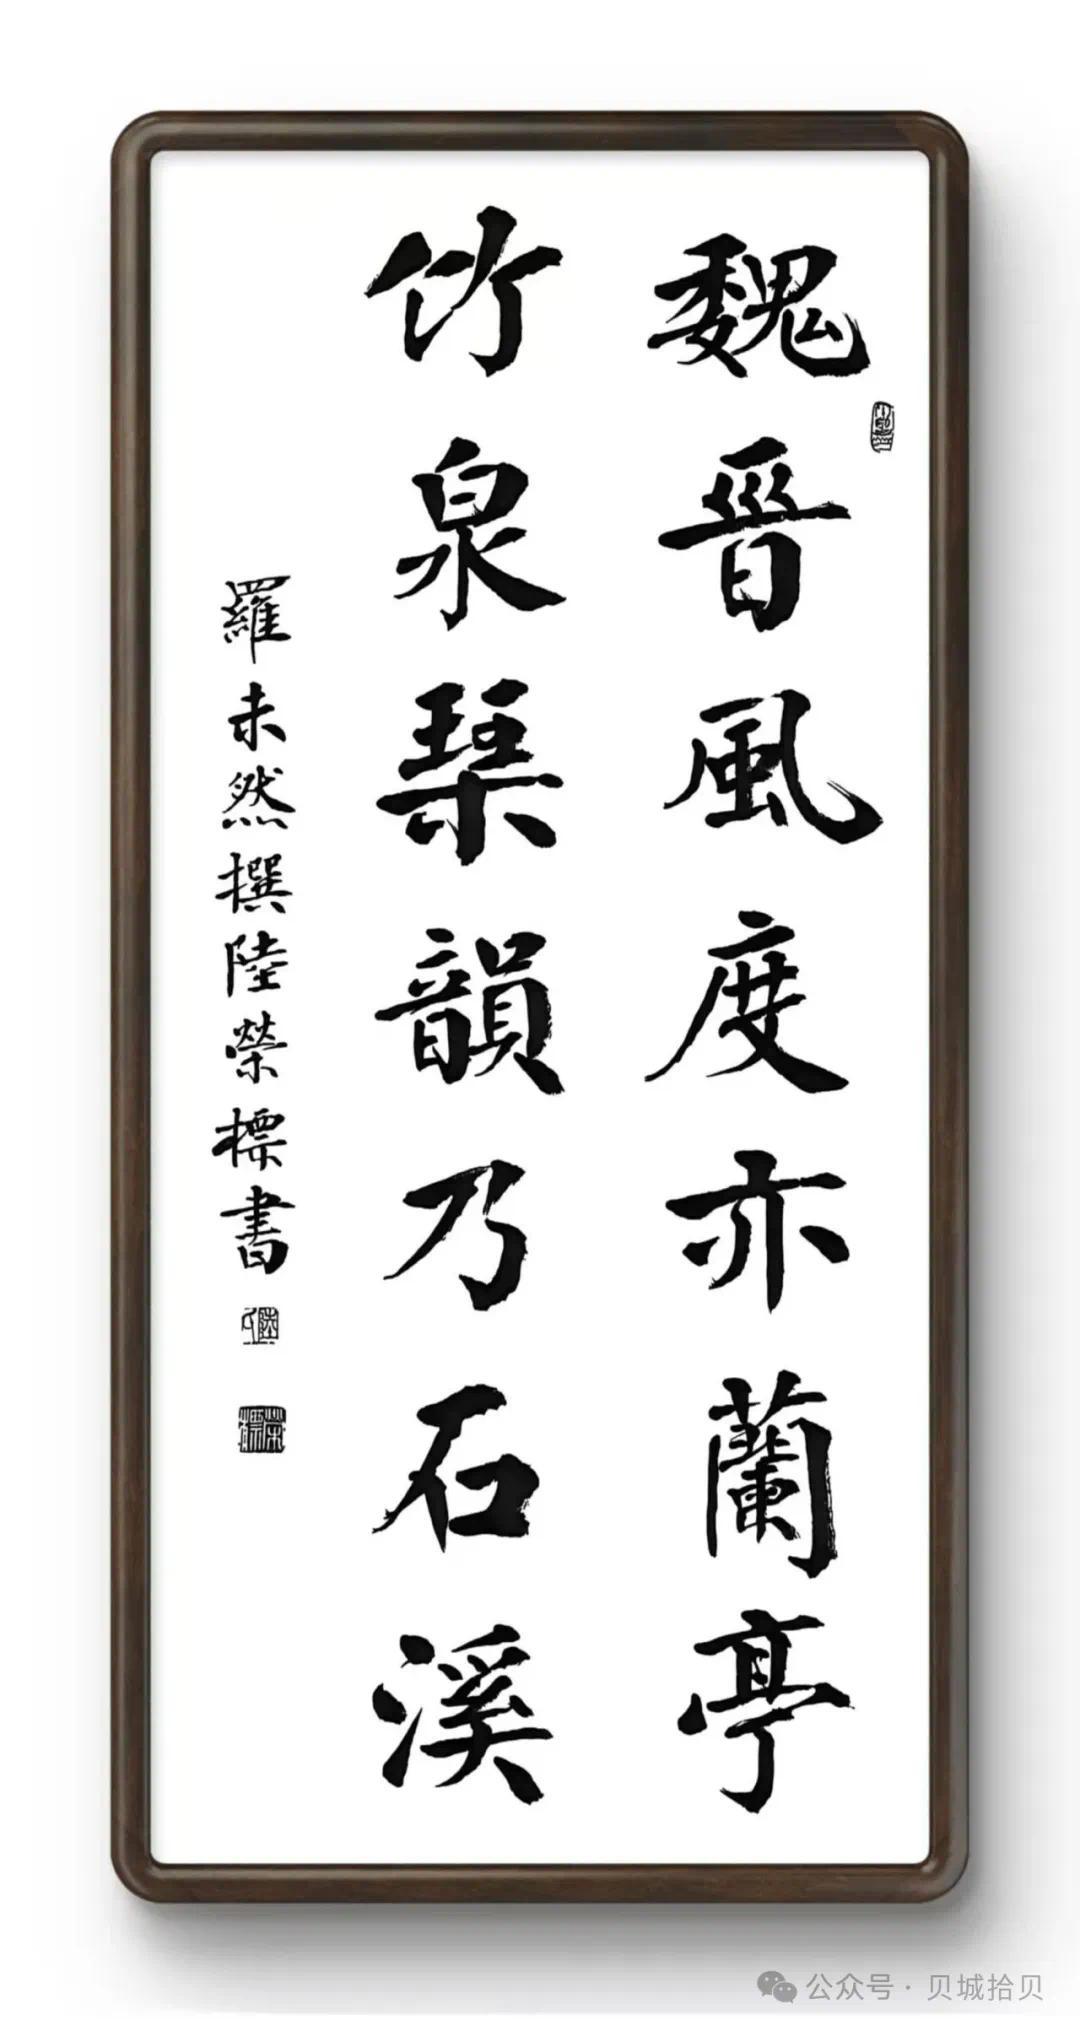 魏晉風度亦蘭亭
竹泉琹韻乃石溪
羅未然撰陸榮標書
公众号 · 贝城拾贝